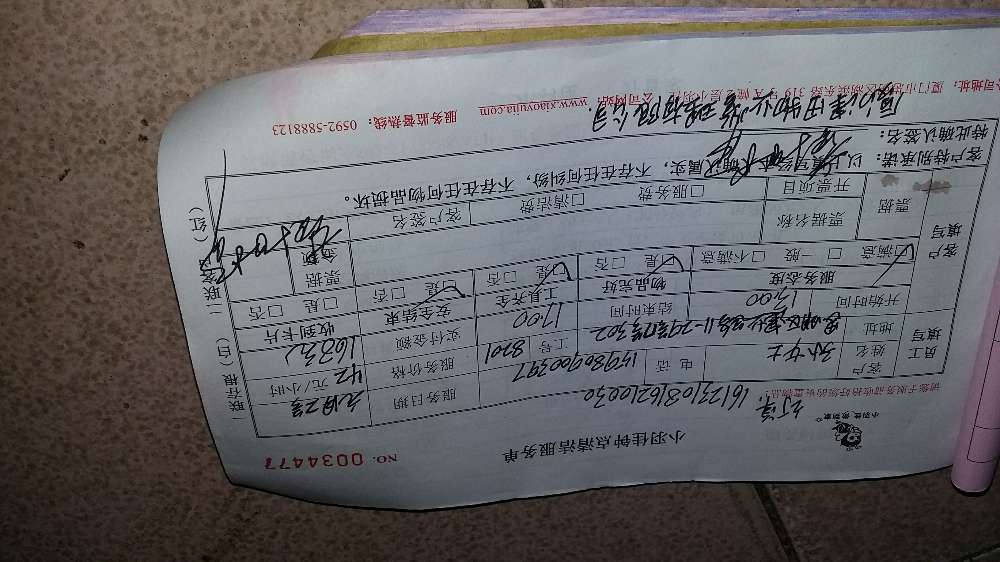 小羽佳钟点清洁服务单
NO. 0034477
小羽佳 家到家
订单: 1612310816210030
服务日期 元月2号
员工填写
客户姓名 孙女士 电话 15980900397 服务价格 42 元/小时
地址 工号 8201 实付金额 168元
开始时间 13:00 结束时间 17:00 安全结束 收到卡片
客户填写
服务态度 物品完好 工具齐全
☑满意 □一般 □不满意 ☑是 □否 ☑是 □否 ☑是 □否 □是 □否
票据 票据名称 票据金额
开票项目 □服务费 □清洁费 客户签名
客户特别承诺: 以上填写经本人确认属实, 不存在任何纠纷, 不存在任何物品损坏。
特此确认签名:
公司网站: www.xiaoyujia.com 服务监督热线: 0592-5888123
一联存根 (白) 二联客户 (红)